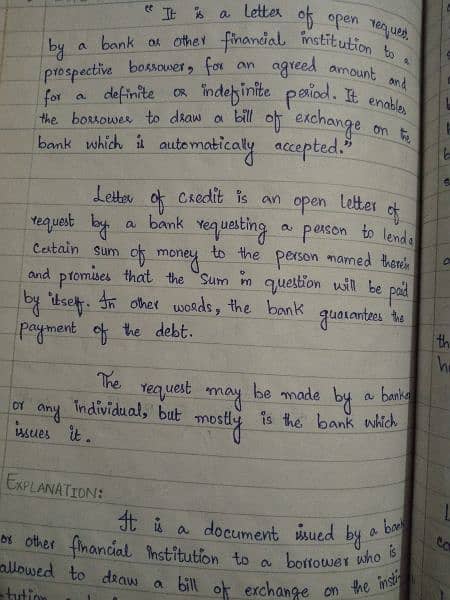 “It is a letter of open request
by a bank or other financial institution to a
prospective borrower, for an agreed amount and
for a definite or indefinite period. It enables
the borrower to draw a bill of exchange on the
bank which is automatically accepted.”
Letter of credit is an open letter of
request by a bank requesting a person to lend a
certain sum of money to the person named therein
and promises that the sum in question will be paid
by itself. In other words, the bank guarantees the
payment of the debt.
The request may be made by a banker
or any individual, but mostly is the bank which
issues it.
EXPLANATION:
It is a document issued by a bank
or other financial institution to a borrower who is
allowed to draw a bill of exchange on the insti-
tution